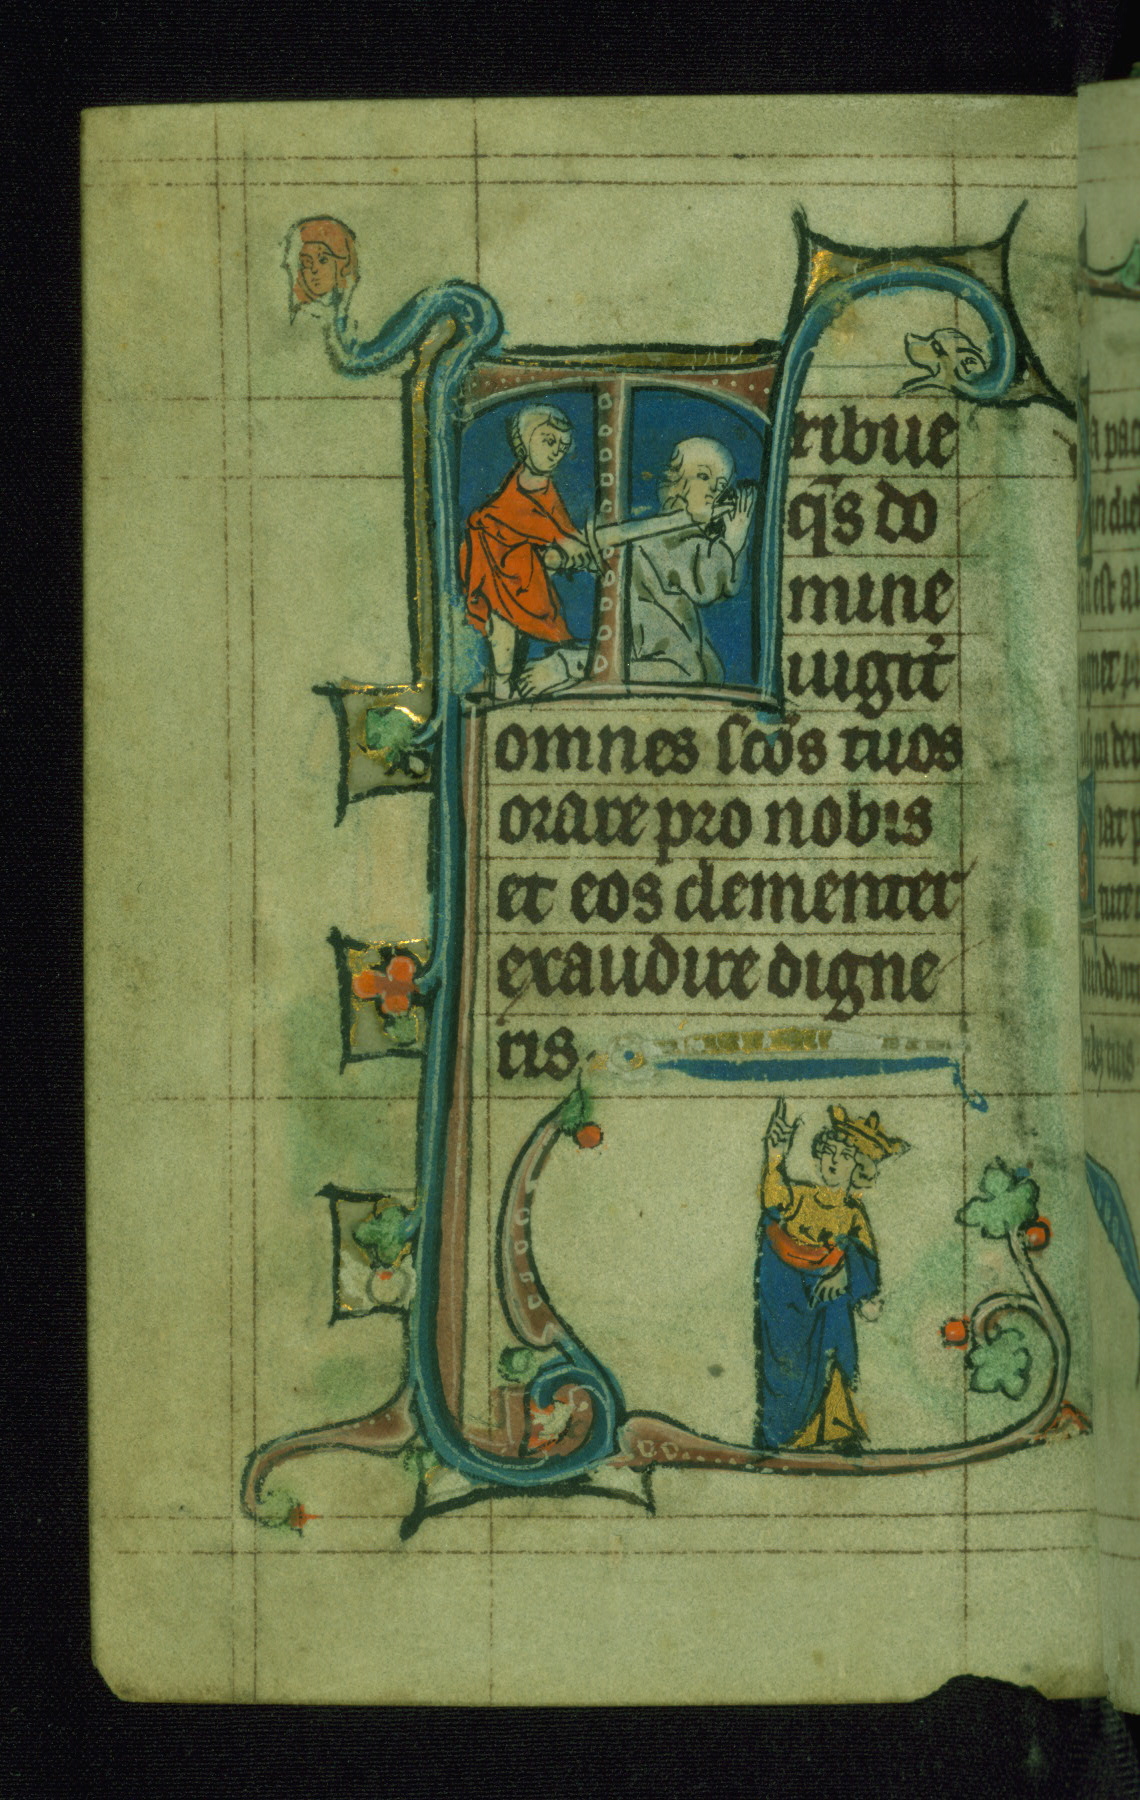 Tribue
q̄s do
mine
iugit᷑
omnes sc̄os tuos
orare pro nobis
et eos clementer
exaudire digne
ris.